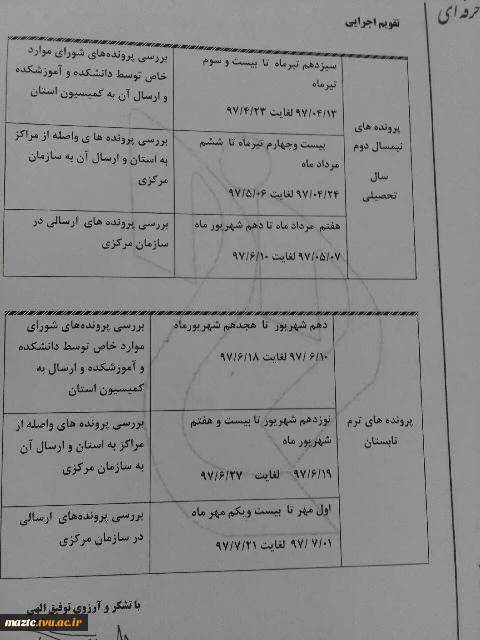 حرفه ای
تقویم اجرایی
پرونده های
نیمسال دوم
سال
تحصیلی
سیزدهم تیرماه تا بیست و سوم
تیرماه
۹۷/۰۴/۱۳ لغایت ۹۷/۴/۲۳
بررسی پرونده‌های شورای موارد
خاص توسط دانشکده و آموزشکده
و ارسال آن به کمیسیون استان
بیست وچهارم تیرماه تا ششم
مرداد ماه
۹۷/۰۴/۲۴ لغایت ۹۷/۵/۰۶
بررسی پرونده ها ی واصله از مراکز
به استان و ارسال آن به سازمان
مرکزی
هفتم مرداد ماه تا دهم شهریور ماه
۹۷/۰۵/۰۷ لغایت ۹۷/۶/۱۰
بررسی پرونده های ارسالی در
سازمان مرکزی
پرونده های ترم
تابستان
دهم شهریور تا هجدهم شهریورماه
۹۷/ ۶/۱۰ لغایت ۹۷/۶/۱۸
بررسی پرونده‌های شورای
موارد خاص توسط دانشکده
و آموزشکده و ارسال به
کمیسیون استان
نوزدهم شهریور تا بیست و هفتم
شهریور ماه
۹۷/۶/۱۹ لغایت ۹۷/۶/۲۷
بررسی پرونده های واصله از
مراکز به استان و ارسال آن
به سازمان مرکزی
اول مهر تا بیست ویکم مهر ماه
۹۷/ ۷/۰۱ لغایت ۹۷/۷/۲۱
بررسی پرونده‌های ارسالی
در سازمان مرکزی
با تشکر و آرزوی توفیق الهی
maztc.tvu.ac.ir